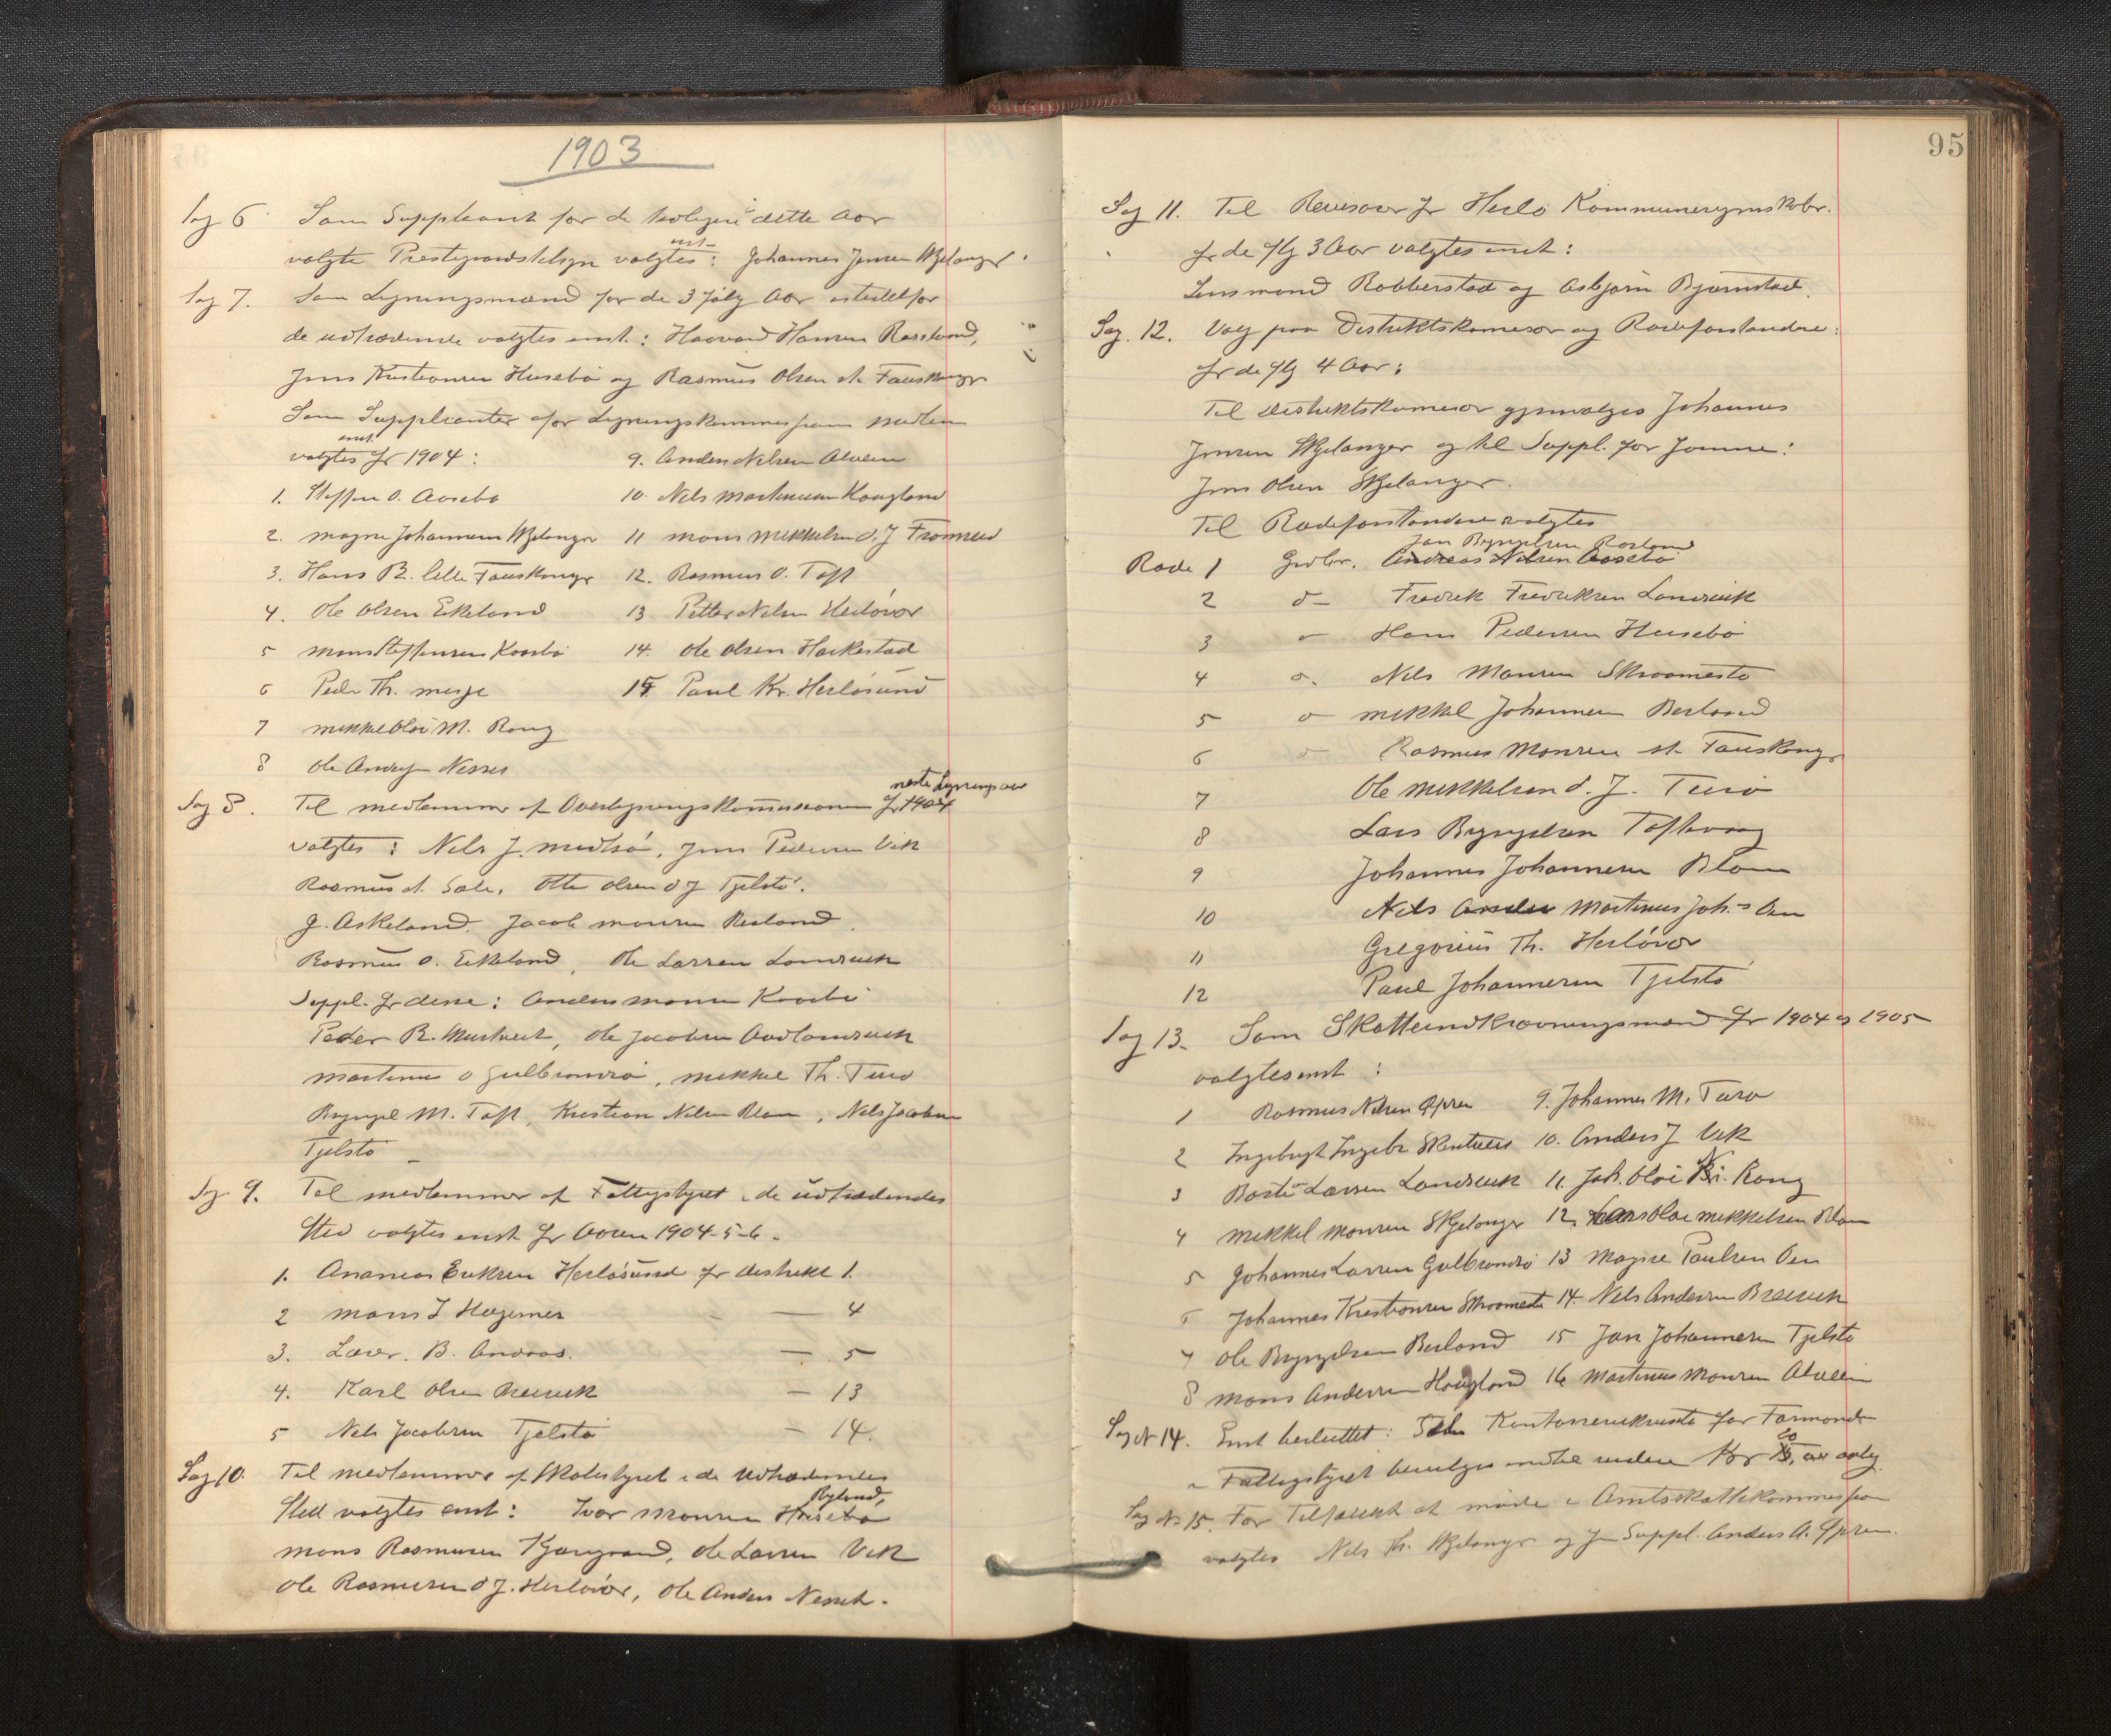 1903
Sag 6 Som Suppleant for de tidligere i dette Aar
valgte Prestegaardstilsyn valgtes enst: Johannes Jensen Skjelanger.
Sag 7. Som Ligningsmænd for de 3 følg Aar istedetfor
de udtrædende valgtes enst.: Haavard Hansen Rossland,
Jens Kristiansen Husebø og Rasmus Olsen st. Fauskanger
Som Supplianter for Ligningskommissjonens medlem
valgtes enst. for 1904:
9. Anders Nilsen Alvem
1. Steffen O. Aasebø
10. Nils Martinusen Haugland
2. Magne Johannesen Skjelanger
11 Mons Mikkelsen d. J Fromreid
3. Hans B. lille Fauskanger
12. Rasmus O. Toft
4. Ole Olsen Eikeland
13 Petter Nilsen Herløvær
5 Mons Steffensen Kaarbø
14. Ole Olsen Hackestad
6 Peder Th. Misje
15 Paul Kr. Herløsund
7 Mikkel Olai M. Rong
8 Ole Anders Nesset
Sag 8. Til medlemmer af Overligningskommissionen for 1904 næste Ligningsaar
valgtes: Nils J. Midtsø, Jens Pedersen Vik
Rasmus A. Sæle, Otte Olsen d J Tjelstø,
J. Askeland, Jacob Monsen Risland,
Rasmus O. Eikeland, Ole Larsen Landsvik
Suppl. for disse: Anders Monsen Kaarbø
Peder R. Merkvest, Ole Jacobsen Aadlandsvik
Martinus O Gulbrandsø, Mikkel Th. Turø
Brynjel M. Toft, Kristian Nilsen Blom, Nils Jacobsen
Tjelstø
Sag 9. Til medlemmer af Fattigstyret i de udtrædendes
Sted valgtes enst for Aarene 1904-5-6.
1. Ananias Eriksen Herløsund for distrikt 1.
2 Mons J Hagenes — 4
3. Lærer. B. Andaas. — 5
4. Karl Olsen Breivik — 13
5 Nils Jacobsen Tjelstø — 14.
Sag 10. Til medlemmer af Skolestyret i de Udtrædendes
Sted valgtes enst: Ivar Monsen Husebø Byland,
Mons Rasmusen Kjærgaard, Ole Larsen Vik
Ole Rasmusen d J. Herløvær, Ole Anders Nesset.
95
Sag 11. Til Revisorer for Herlø Kommuneregnskaber.
for de flg 3 Aar valgtes enst:
Lensmand Rabberstad og Asbjørn Bjørnstad.
Sag. 12. Valg paa Distriktskomisær og Rodeforstandere:
for de flg 4 Aar:
Til Distriktskomisær gjenvalges Johannes
Jensen Skjelanger og til Suppl. for samme:
Jens Olsen Skjelanger.
Til Rodeforstandere valgtes
Jan Brynjelsen Rosland
Rode 1 Grdbr. Andreas Nilsen Aasebø
2 do— Fredrik Fredriksen Landsvik
3 — Hans Pedersen Husebø
4 o. Nils Monsen Skraamestø
5 o— Mikkel Johannesen Berland
6 — Rasmus Monsen st. Fauskanger
7 Ole Mikkelsen d. J. Turø
8 Lars Brynjelsen Toftevaag
9 Johannes Johannesen Blom
10 Nils Anders Martinus Joh.s Øen
11 Gregorius Th. Herløvær
12 Paul Johannesen Tjelstø
Sag 13. Som Skatteindkrævningsmænd for 1904 og 1905
valgtes enst:
1 Rasmus Nilsen Øpsen 9. Johannes M. Turø
2 Ingebrigt Ingebr Skutevig 10. Anders J Vik
3 Baste Larsen Landsvik 11. Joh. Olai Kr. Rong
4 Mikkel Monsen Skjelanger 12. Lars Olai Mikkelsen Blom
5 Johannes Larsen Gulbrandsø 13 Magne Paulsen Øen
6 Johannes Kristiansen Skraamestø 14. Nils Andersen Breivik
7 Ole Brynjelsen Berland 15 Jan Johannesen Tjelstø
8 Mons Andersen Haugland 16 Martinus Monsen Alvem
Sag № 14. Enst besluttet: Kontorrekvisita for Formand
i Fattigstyret bevilges indtil videre Kr aarlig
Sag № 15. For Tilfælde at møde i Amtsskattekommission
valgtes Nils Th. Skjelanger og som Suppl. Anders A. Øpsen.